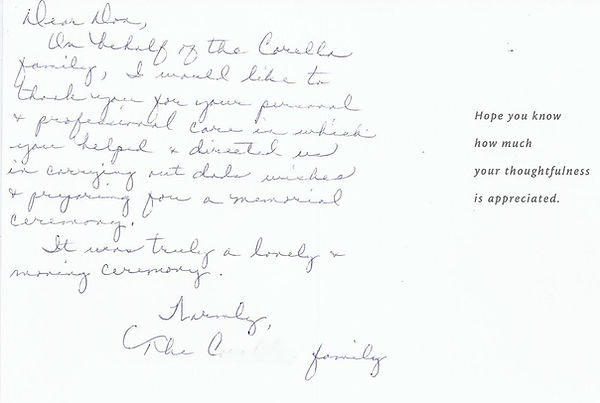 Dear Don,
On behalf of the Corella
family, I would like to
thank you for your personal
& professional care in which
you helped & directed us
in carrying out dads wishes
& preparing for a memorial
ceremony.
It was truly a lovely &
moving ceremony.
Warmly,
The Co family
Hope you know
how much
your thoughtfulness
is appreciated.